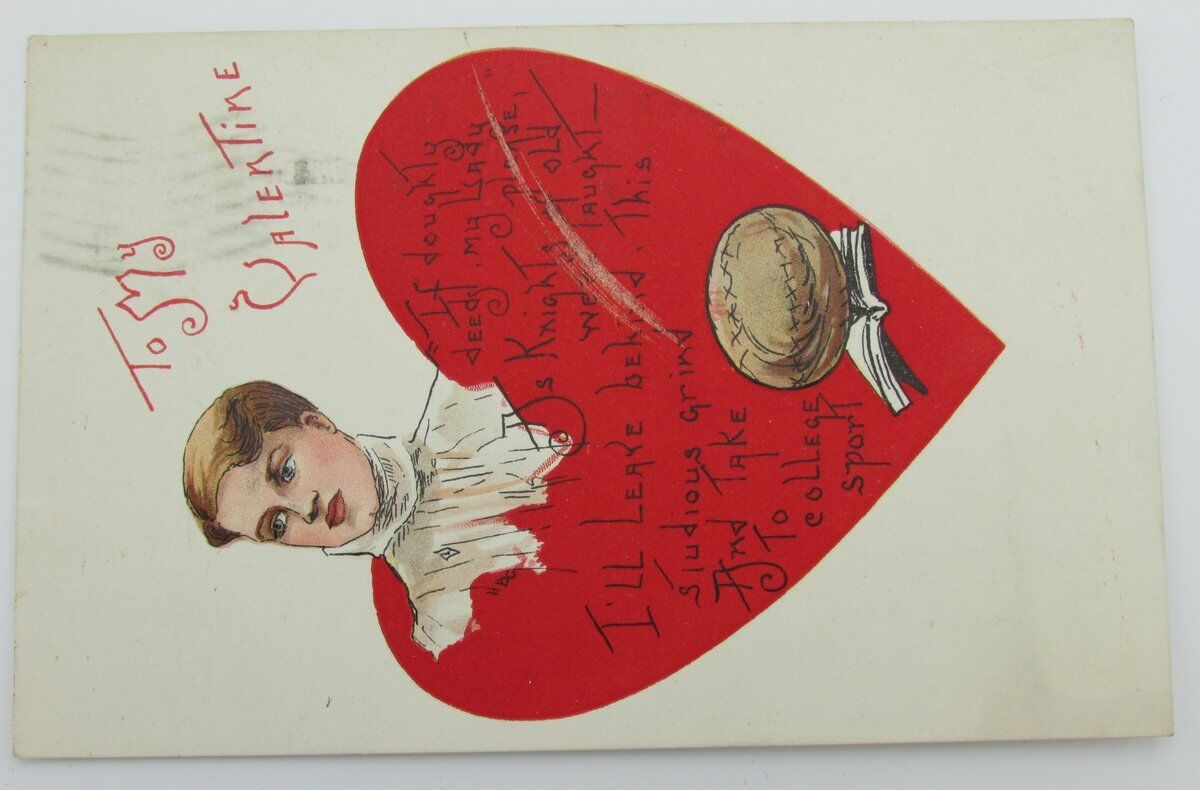 To My
Valentine
"If doughty
deeds, my Lady
please,"
As Knights of old
were taught—
I'll leave behind. This
studious grind
And take
To
college
sport
HBG